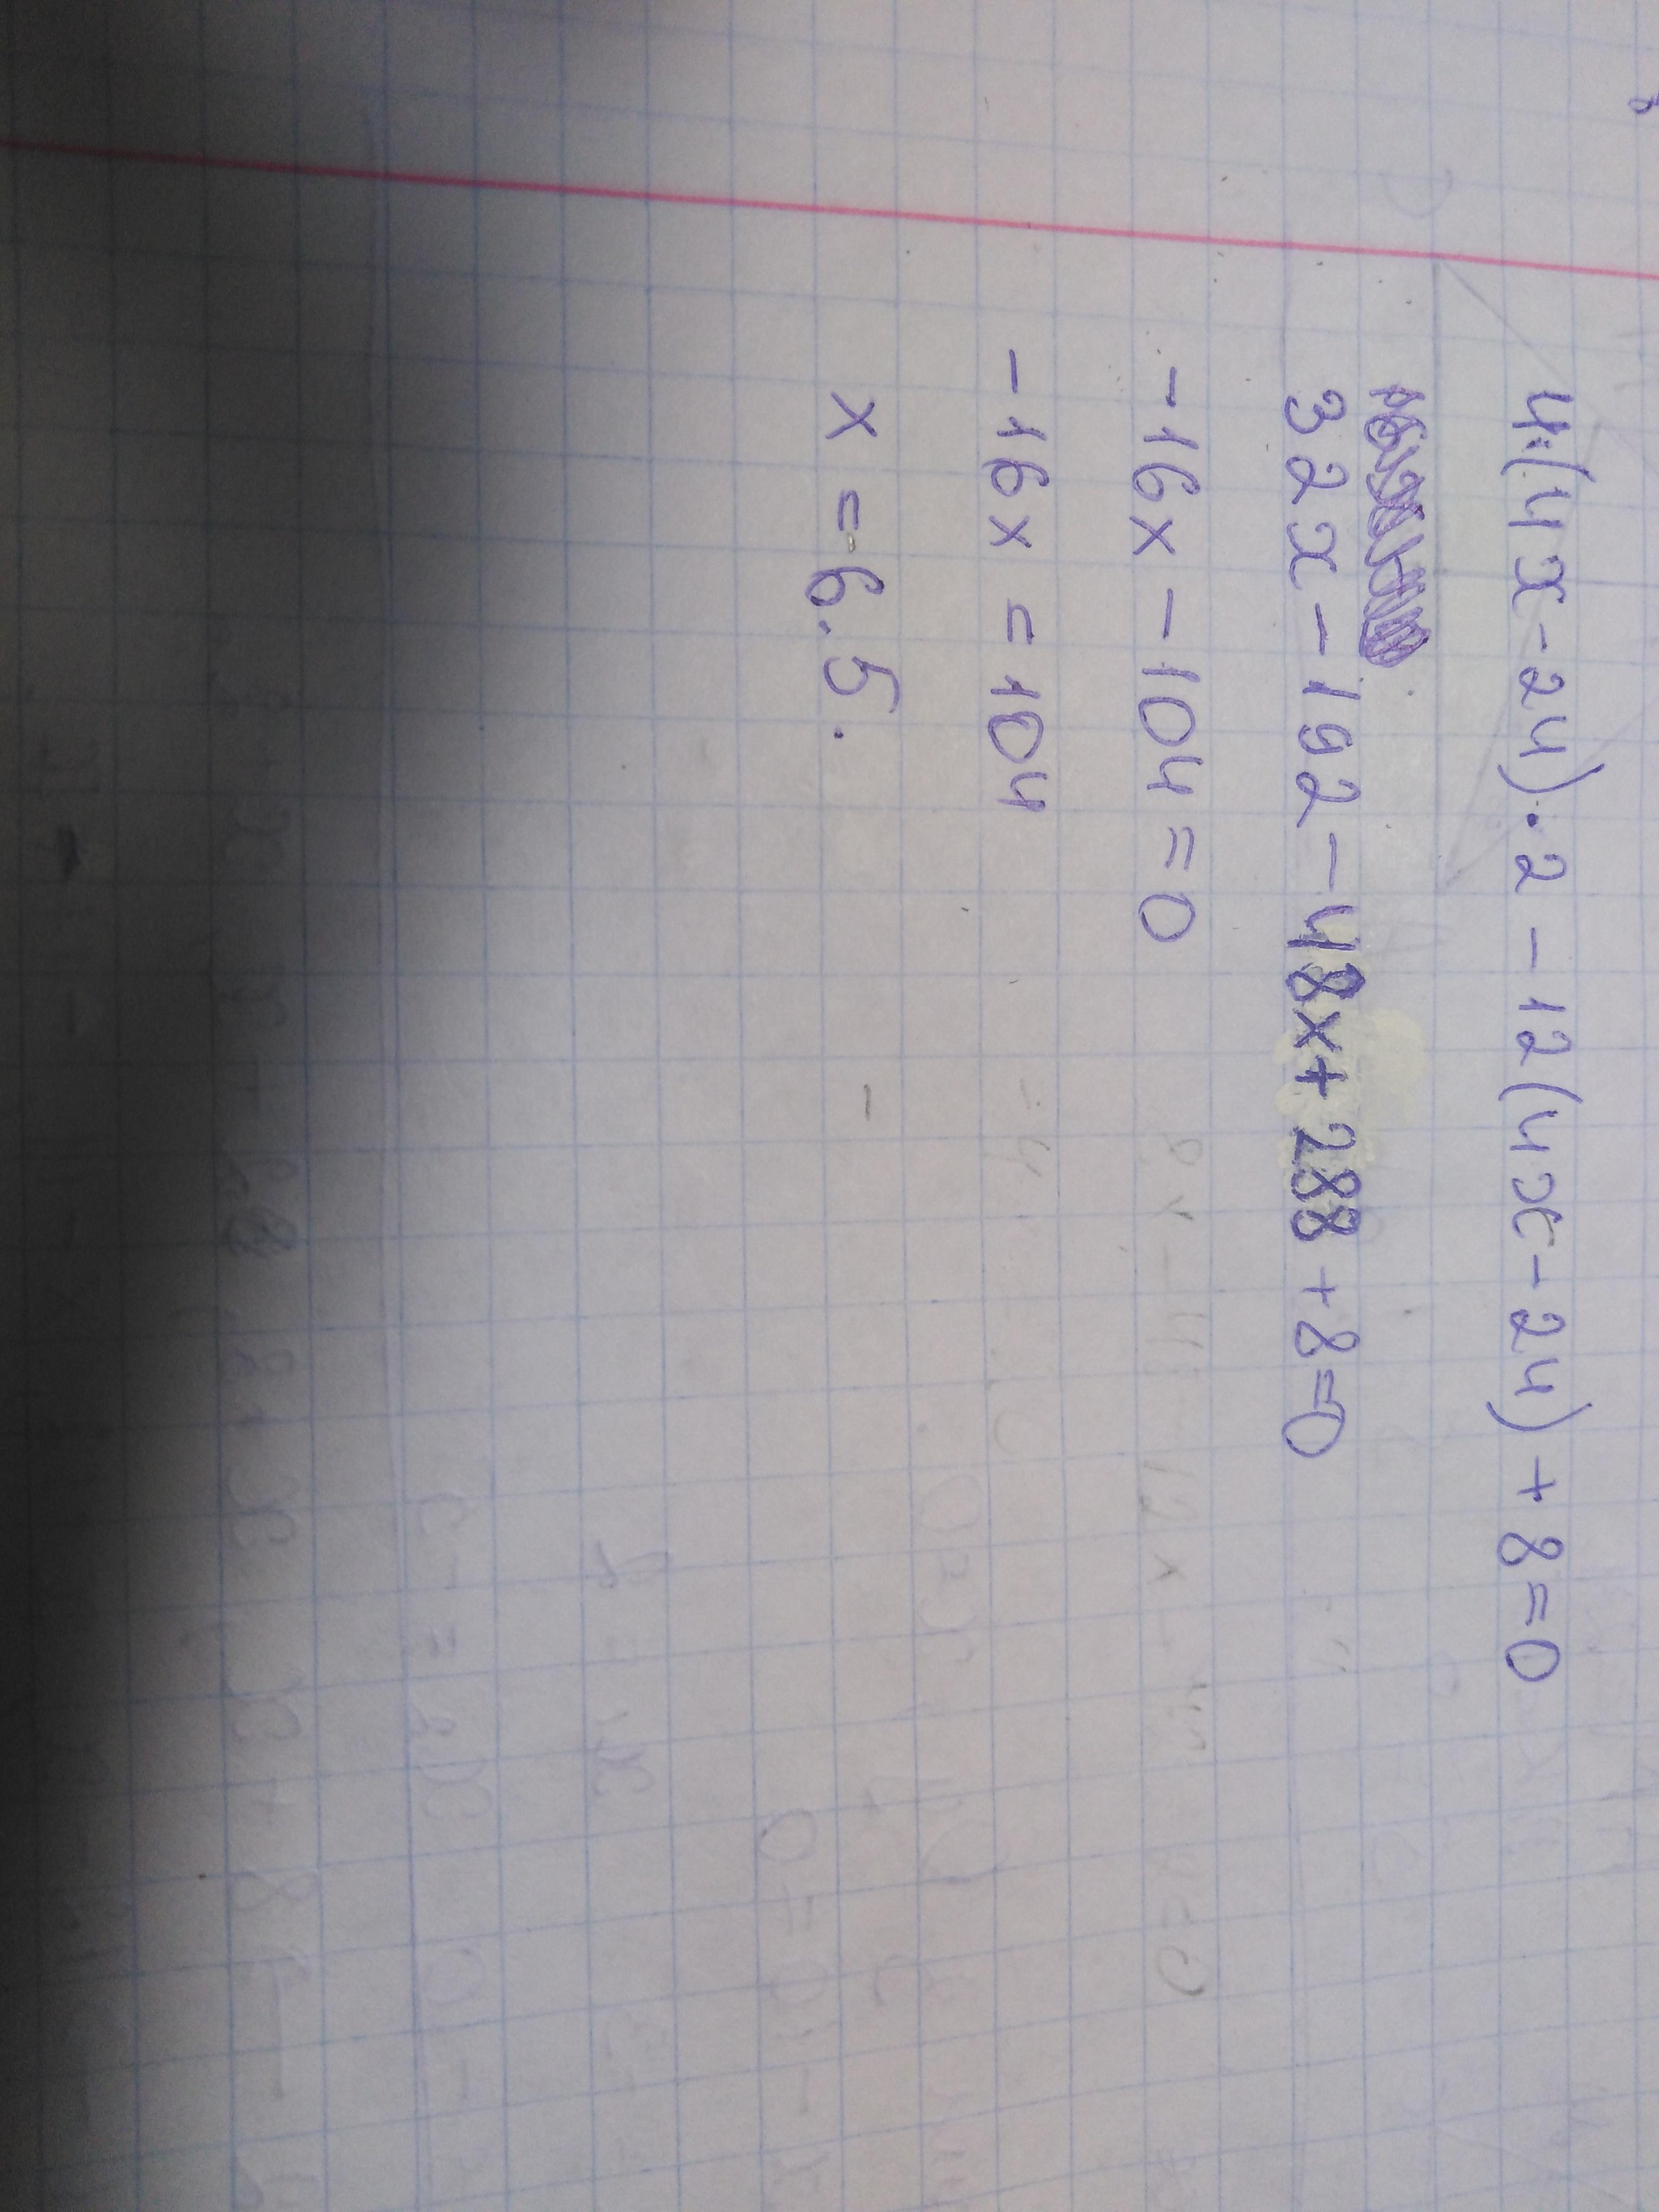 4·(4x-24)·2-12(4x-24)+8=0
32x-192-48x+288+8=0
-16x-104=0
-16x=104
x=-6.5.